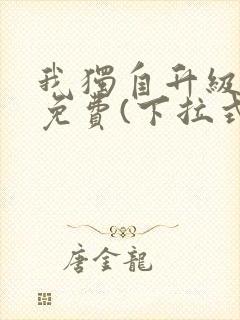 我獨自升級
免費(下拉式
唐金龍